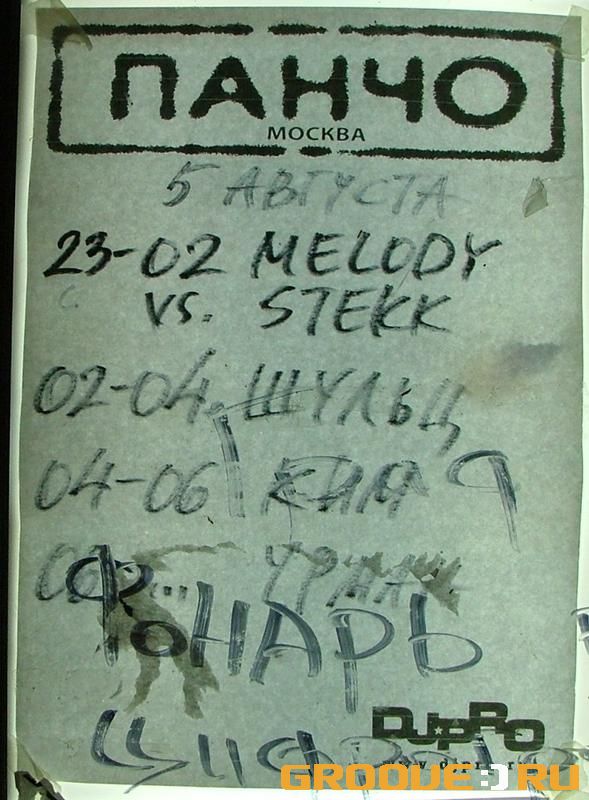 ПАНЧО
МОСКВА
5 АВГУСТА
23-02 MELODY
VS. STEKK
02-04 ШУЛЬЦ
04-06 КИМ
ФОНАРЬ
DJPRO
GROOVE:)RU